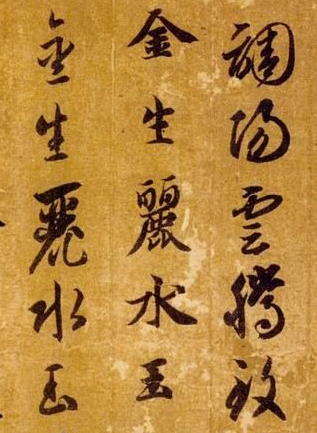 調陽雲騰致
金生麗水玉
金生麗水玉